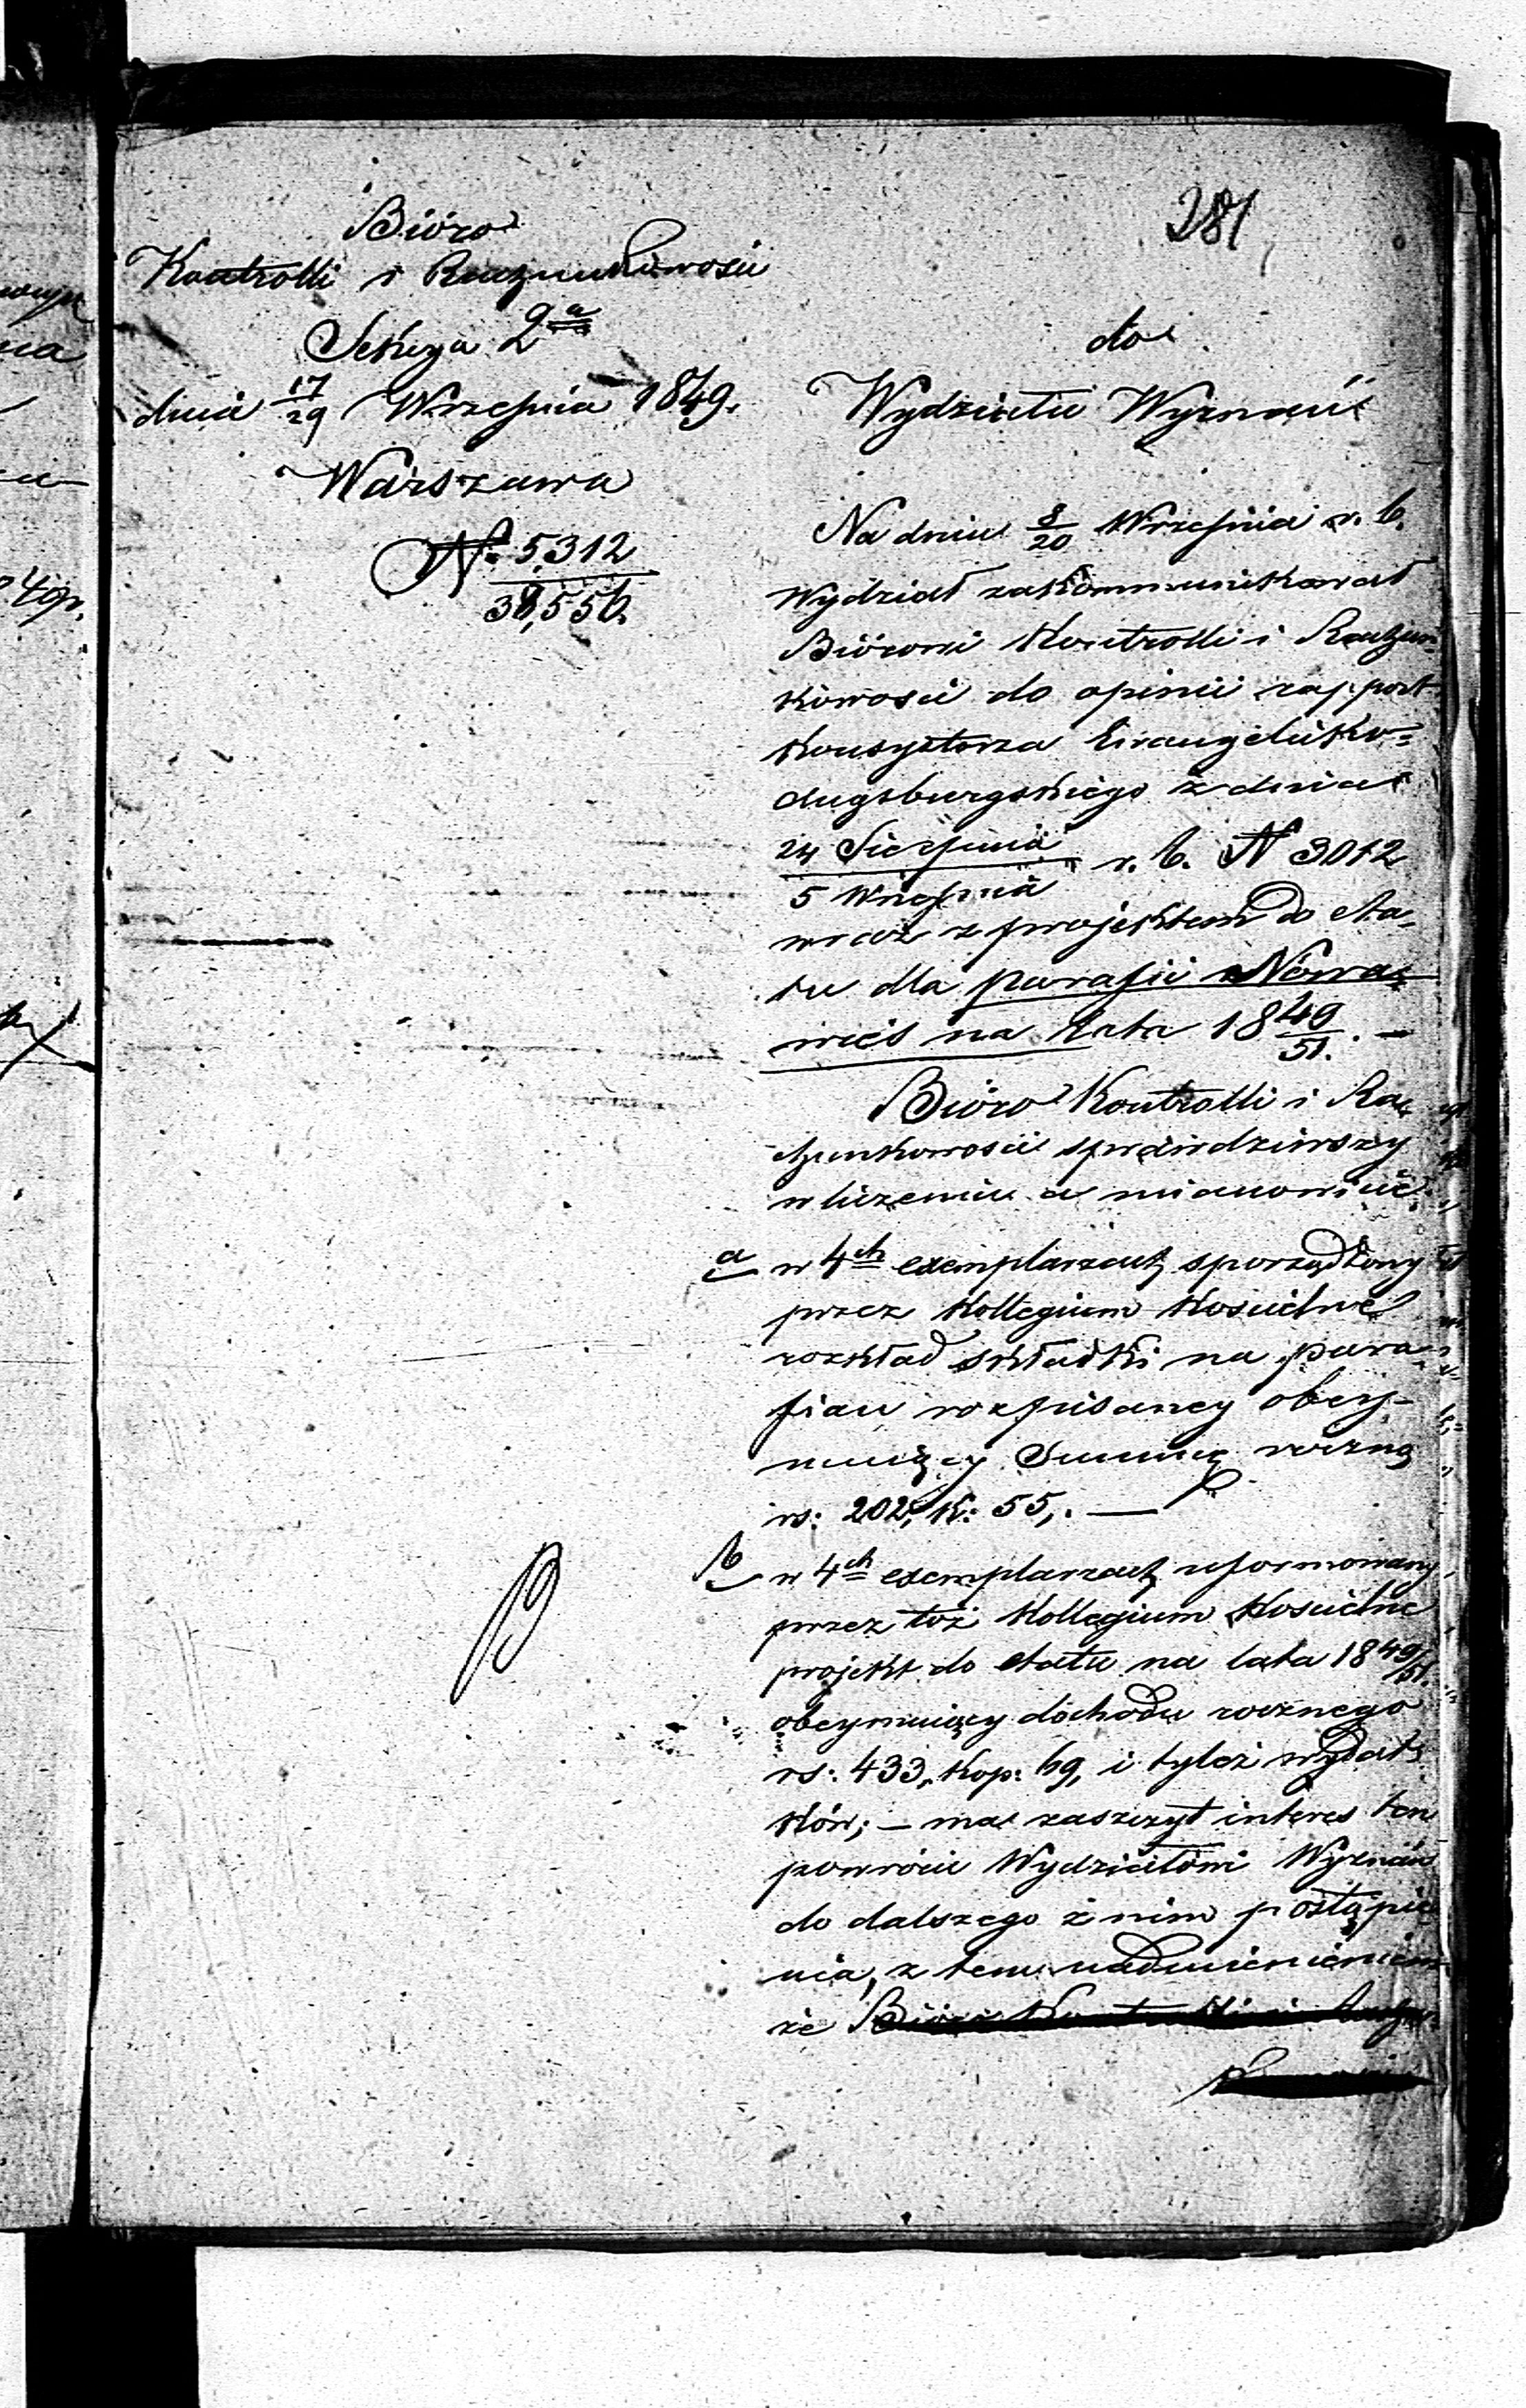 281
Bióro
Kontrolli i Rachunkowości
Sekcya 2ª
dnia 17/29 Września 1849.
Warszawa
N. 5,312
38,556.
do
Wydziału Wyznań
Na dniu 8/20 Września r. b.
Wydział zakommunikował
Biórowi Kontrolli i Rachun-
kowości do opinii rapport
Konsystorza Ewangelicko-
Augsburgskiego z dnia
24 Sierpnia
5 Września r. b. N 3012
wraz z projektem do eta-
tu dla parafii Nowa-
wieś na lata 1849/51. —
Bióro Kontrolli i Ra-
chunkowości sprawdziwszy
w liczeniu a mianowicie:
a w 4ch exemplarzach sporządzony
przez Kollegium Kościelne
rozkład składki na para-
fian rozpisaney obey-
muiący Summę roczną
rs: 202, k: 55,. —
b w 4ch exemplarzach uformowany
przez toż Kollegium Kościelne
projekt do etatu na lata 1849/51.
obeymuiący dochodu rocznego
rs: 433, kop: 69, i tyleż wydat-
ków; — ma zaszczyt interes ten
powrócić Wydziałowi Wyznań
do dalszego z nim postąpie-
nia, z tem nadmienieniem
że Bióro Kontrolli i Rachun-